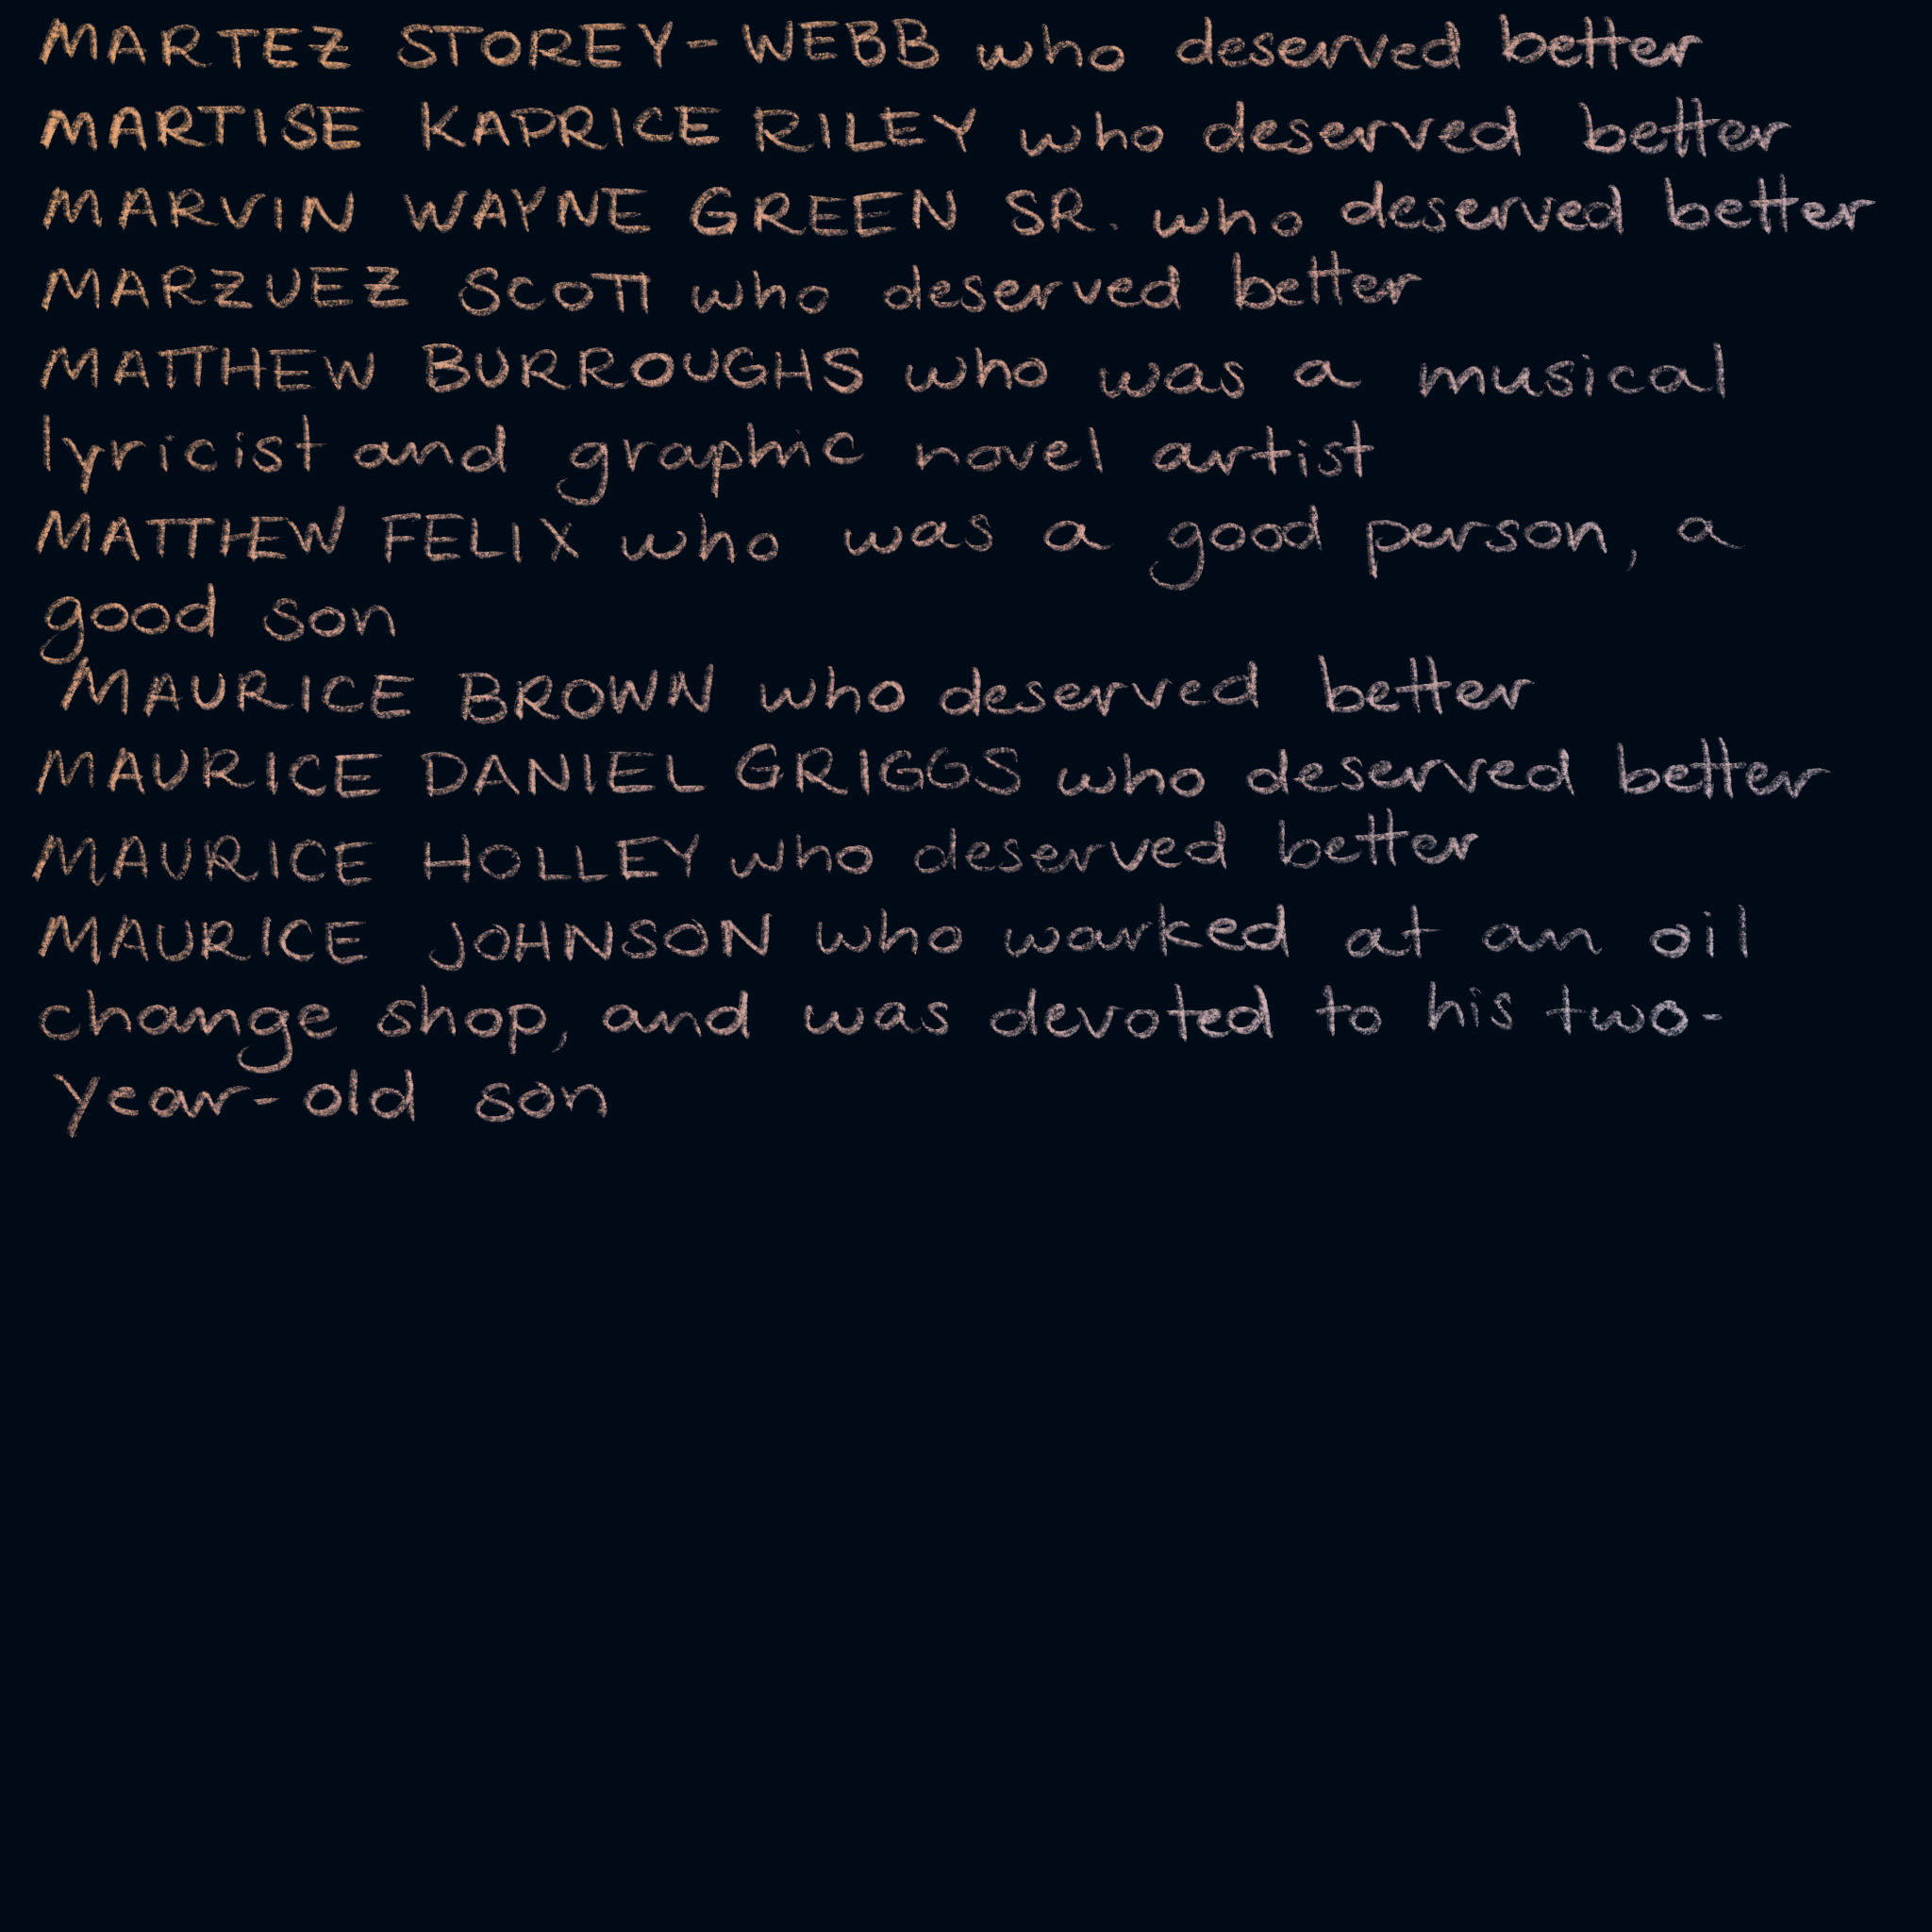 MARTEZ STOREY-WEBB who deserved better
MARTISE KAPRICE RILEY who deserved better
MARVIN WAYNE GREEN SR. who deserved better
MARZUEZ SCOTT who deserved better
MATTHEW BURROUGHS who was a musical
lyricist and graphic novel artist
MATTHEW FELIX who was a good person, a
good son
MAURICE BROWN who deserved better
MAURICE DANIEL GRIGGS who deserved better
MAURICE HOLLEY who deserved better
MAURICE JOHNSON who worked at an oil
change shop, and was devoted to his two-
year-old son